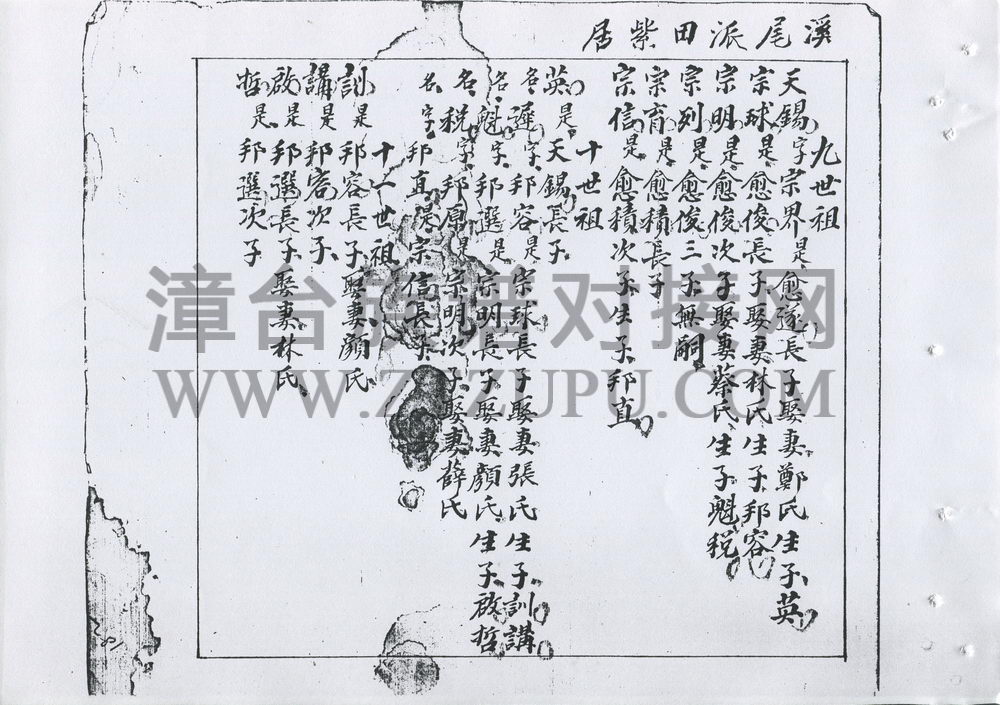 溪尾派田紫居
九世祖
天錫字宗界是愈遂長子娶妻鄭氏生子英
宗球是愈俊長子娶妻林氏生子邦容
宗明是愈俊次子娶妻蔡氏生子魁税
宗列是愈俊三子無嗣
宗育是愈積長子
宗信是愈積次子生子邦直
十世祖
英是天錫長子
名遲字邦容是宗球長子娶妻張氏生子訓講
名魁字邦選是宗明長子娶妻顏氏生子啟哲
名税字邦原是宗明次子娶妻薛氏
名字邦直是宗信長子
十一世祖
訓是邦容長子娶妻顏氏
講是邦容次子
啟是邦選長子娶妻林氏
哲是邦選次子
漳台族谱对接网
WWW.ZTZUPU.COM